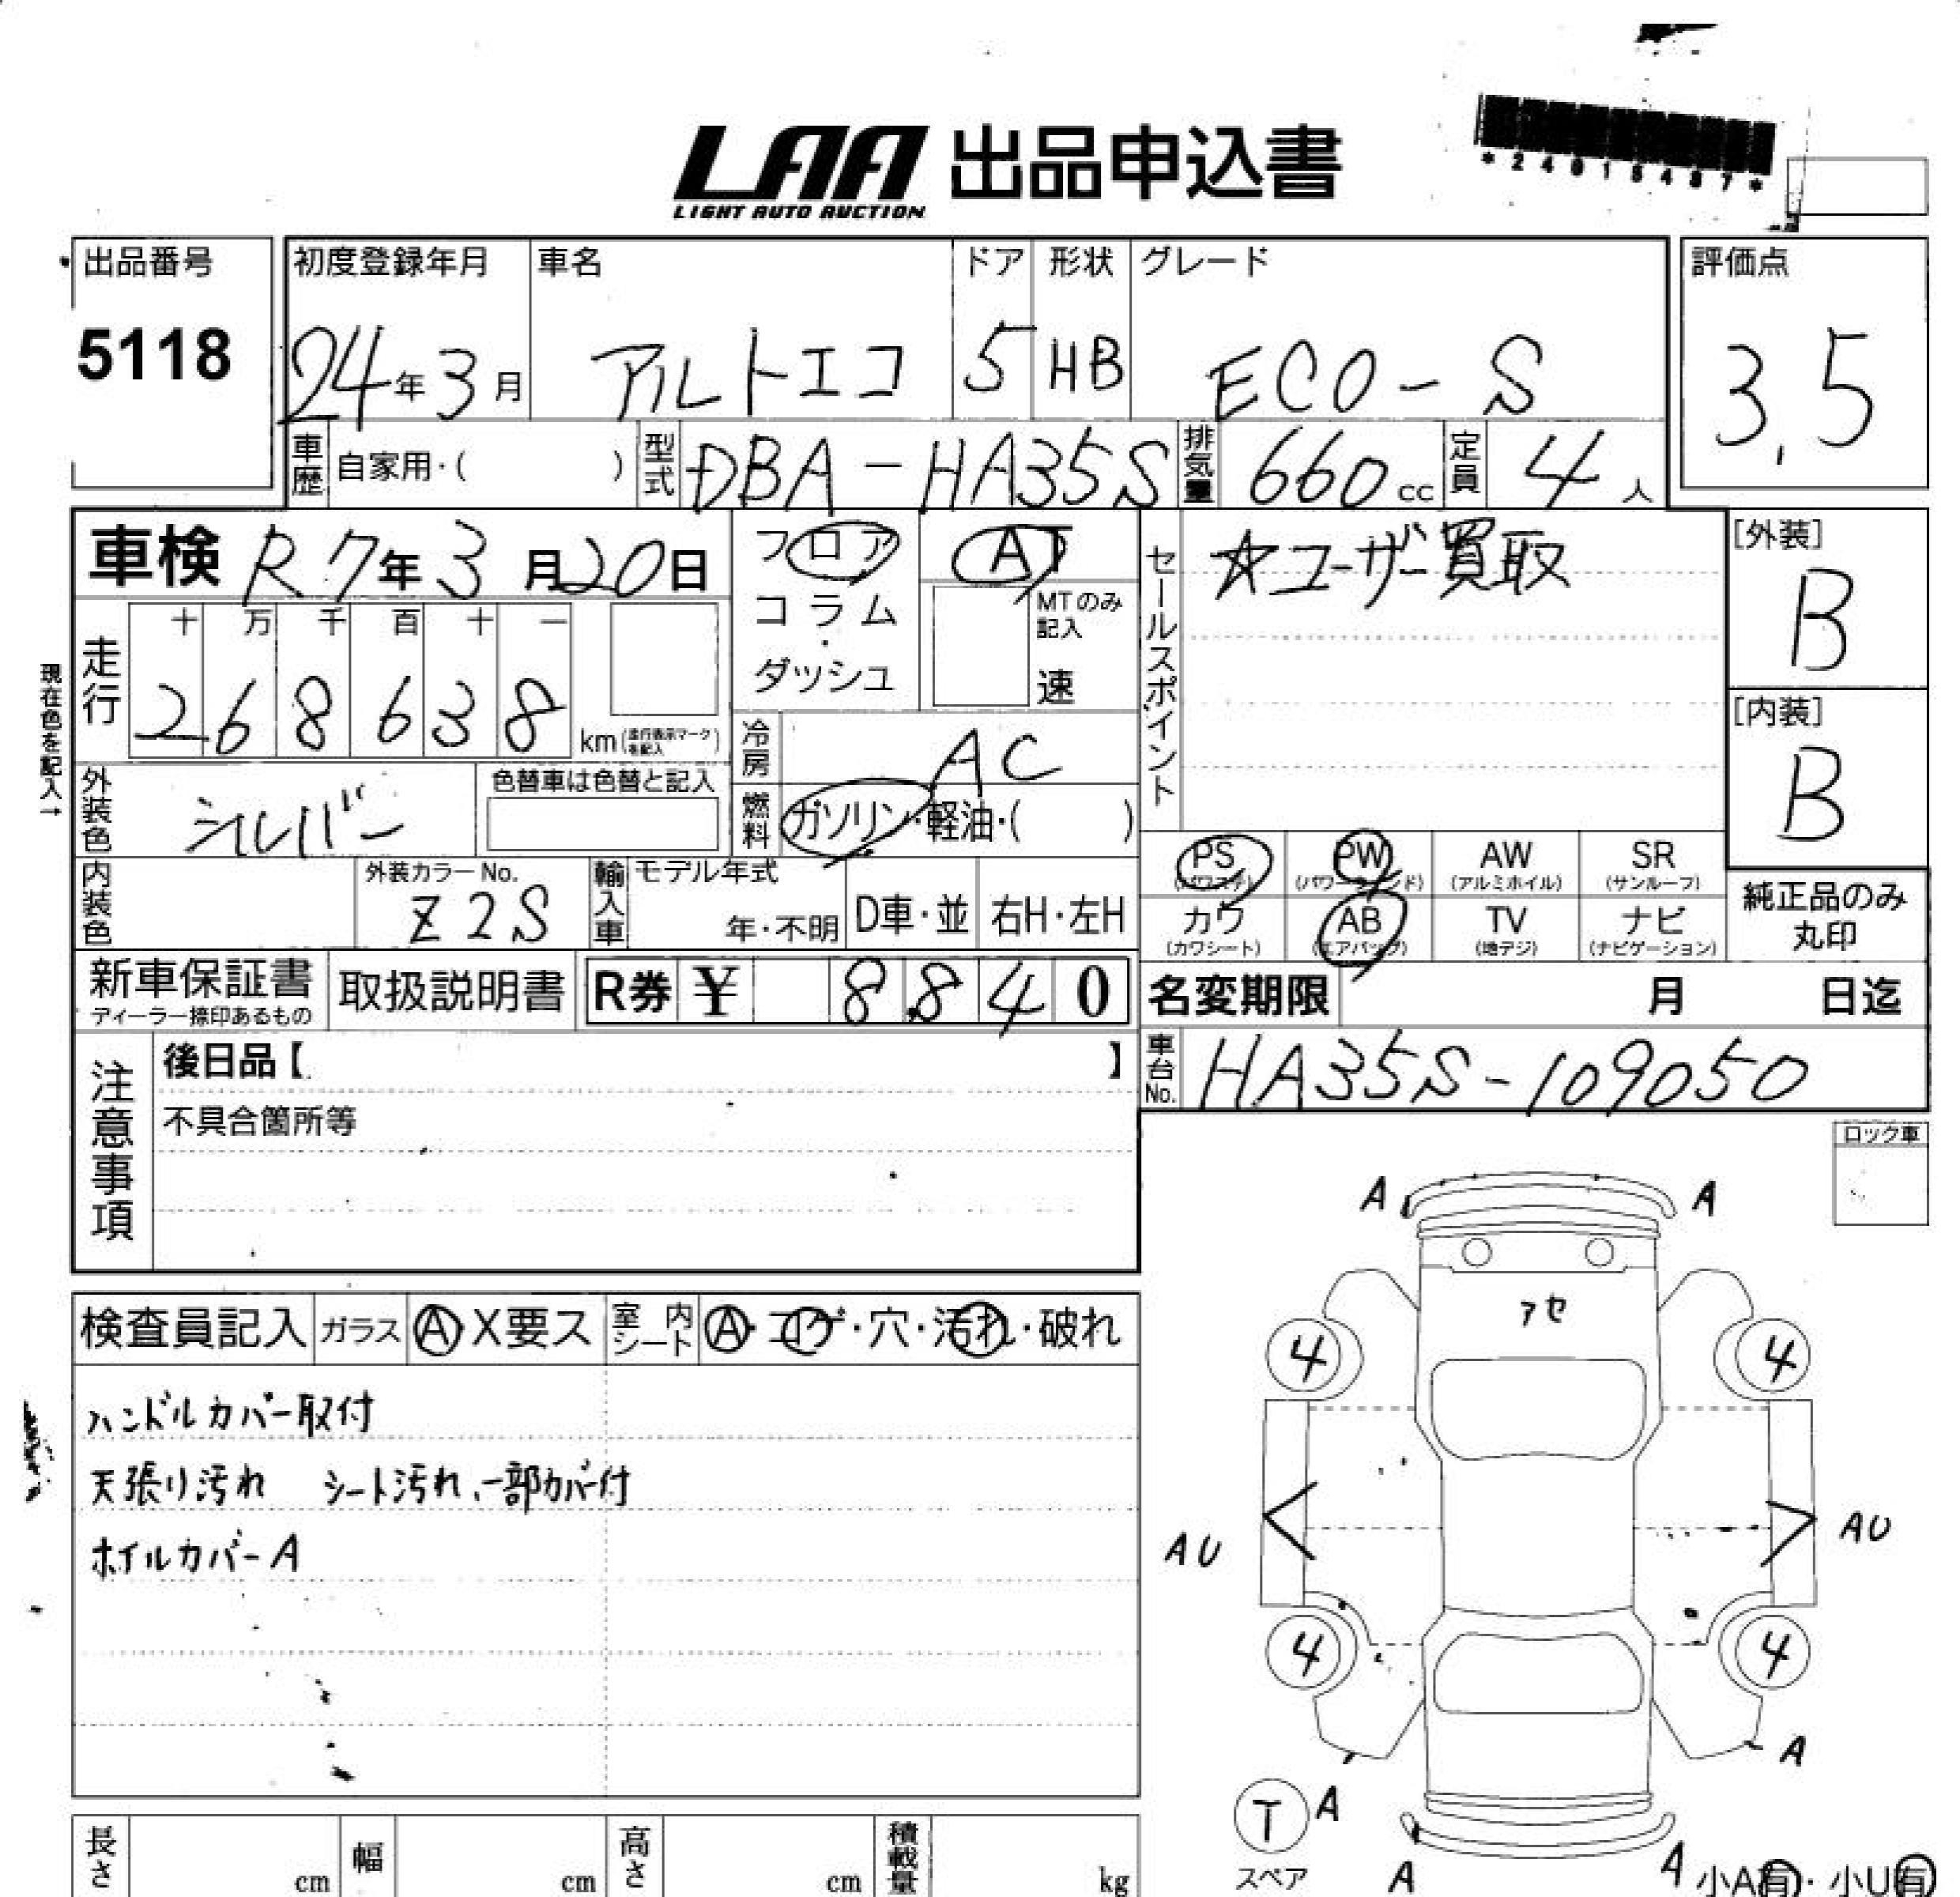 LAA 出品申込書
LIGHT AUTO AUCTION
*24015487*
出品番号
5118
初度登録年月
24年3月
車名
アルトエコ
ドア
5
形状
HB
グレード
ECO-S
評価点
3.5
車歴 自家用・( )
型式 DBA-HA35S
排気量 660cc
定員 4人
車検 R7年3月20日
フロア
コラム
・
ダッシュ
AT
MTのみ記入
速
セールスポイント
☆ユーザー買取
[外装]
B
[内装]
B
現在色を記入→
走行
十 万 千 百 十 一
2 6 8 6 3 8 km(走行表示マークを記入)
冷房 AC
燃料 ガソリン・軽油・( )
外装色 シルバー
色替車は色替と記入
内装色
外装カラーNo.
Z2S
輸入車
モデル年式
年・不明
D車・並
右H・左H
PS (パワステ)
PW (パワーウィンド)
AW (アルミホイル)
SR (サンルーフ)
カワ (カワシート)
AB (エアバッグ)
TV (地デジ)
ナビ (ナビゲーション)
純正品のみ
丸印
新車保証書
ディーラー捺印あるもの
取扱説明書
R券 ¥ 8840
名変期限 月 日迄
車台No. HA35S-109050
注意事項
後日品【 】
不具合箇所等
ロック車
検査員記入
ガラス A X要ス
室内シート A・コゲ・穴・汚れ・破れ
ハンドルカバー取付
天張り汚れ シート汚れ、一部カバー付
ホイルカバーA
A A
アセ
4 4
AU AU
4 4
A A
T
スペア
A A
小A有・小U有
長さ cm
幅 cm
高さ cm
積載量 kg